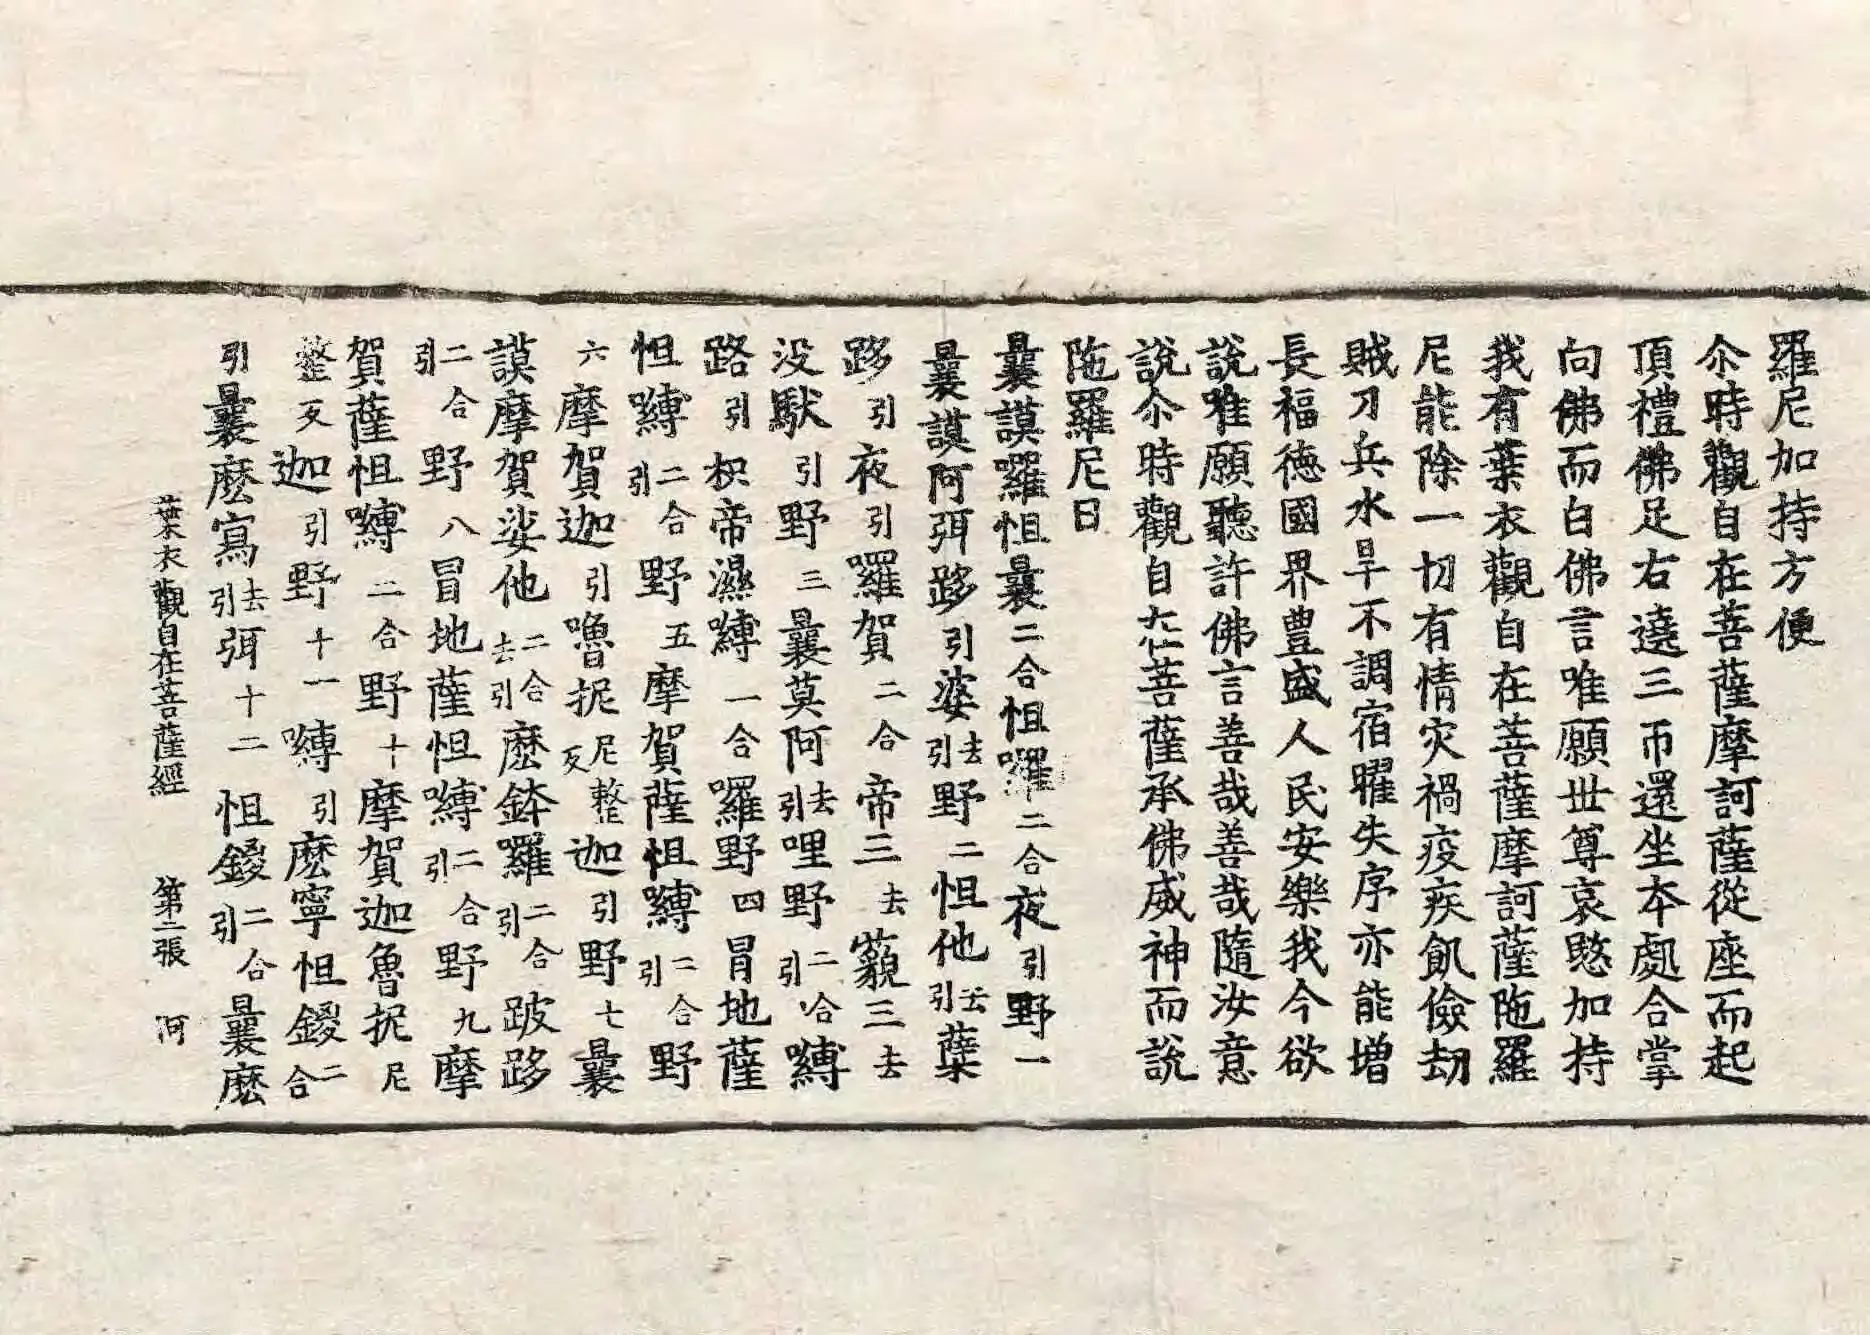 羅尼加持方便
尒時觀自在菩薩摩訶薩從座而起
頂禮佛足右遶三帀還坐本處合掌
向佛而白佛言唯願世尊哀愍加持
我有葉衣觀自在菩薩摩訶薩陁羅
尼能除一切有情灾禍疫疾飢儉劫
賊刀兵水旱不調宿曜失序亦能增
長福德國界豊盛人民安樂我今欲
說唯願聽許佛言善哉善哉隨汝意
說尒時觀自在菩薩承佛威神而說
陁羅尼曰
曩謨囉怛曩二合怛囉二合夜引野一
曩謨阿弭跢引婆去引野二怛他去引蘖
跢引夜引囉賀二合帝三去藐三去
没馱引野三曩莫阿去引哩野二合引嚩
路引枳帝濕嚩一合囉野四冒地薩
怛嚩二合引野五摩賀薩怛嚩二合引野
六摩賀迦引嚕抳尼整反迦引野七曩
謨摩賀娑他二合去引麽鉢羅二合引跛跢
二合引野八冒地薩怛嚩二合引野九摩
賀薩怛嚩二合野十摩賀迦魯抳尼
整反迦引野十一嚩引麽寧怛鑁二合
引曩麽寫去引弭十二怛鑁二合引曩麽
葉衣觀自在菩薩經 第二張 河